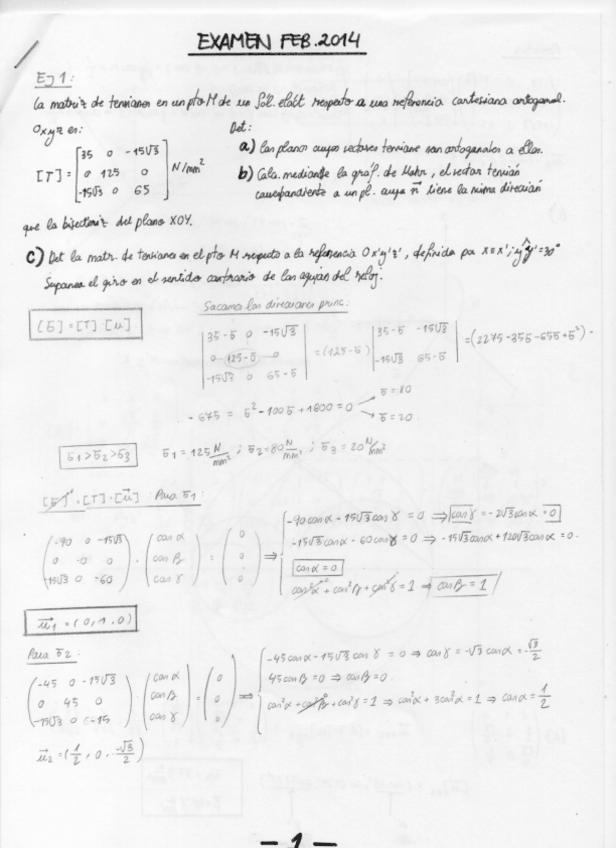 EXAMEN FEB. 2014
EJ 1:
La matriz de tensiones en un pto M de un Sól. elást respecto a una referencia cartesiana ortogonal.
Oxyz es: Det:
[T] = [35 0 -15√3; 0 125 0; -15√3 0 65] N/mm²
a) Los planos cuyos vectores tensione sean ortogonales a ellos.
b) Calc. mediante la gráf. de Mohr, el vector tensión
correspondiente a un pl. cuya n⃗ tiene la misma dirección
que la bisectriz del plano XOY.
c) Det la matr. de tensiones en el pto M respecto a la referencia Ox'y'z', definida por x≡x'; yy'=30°
Suponer el giro en el sentido contrario de las agujas del reloj.
Sacamos las direcciones princ:
[σ] = [T]·[u]
|35-σ 0 -15√3; 0 125-σ 0; -15√3 0 65-σ| = (125-σ) |35-σ -15√3; -15√3 65-σ| = (2275-35σ-65σ+σ²) -
- 675 = σ²-100σ+1600=0 σ=80 σ=20
σ1>σ2>σ3 σ1=125 N/mm²; σ2=80 N/mm²; σ3=20 N/mm²
[σ]=[T]·[u⃗] Para σ1:
(-90 0 -15√3; 0 -0 0; -15√3 0 -60) · (cosα; cosβ; cosγ) = (0; 0; 0) ⇒
-90cosα-15√3cosγ=0 ⇒ cosγ=-2√3cosα=0
-15√3cosα-60cosγ=0 ⇒ -15√3cosα+120√3cosα=0.
cosα=0
cos²α+cos²β+cos²γ=1 ⇒ cosβ=1
u⃗1=(0,1,0)
Para σ2:
(-45 0 -15√3; 0 45 0; -15√3 0 -15) · (cosα; cosβ; cosγ) = (0; 0; 0) ⇒
-45cosα-15√3cosγ=0 ⇒ cosγ=-√3cosα=-√3/2
45cosβ=0 ⇒ cosβ=0.
cos²α+cos²β+cos²γ=1 ⇒ cos²α+3cos²α=1 ⇒ cosα=1/2
u⃗2=(1/2, 0, -√3/2)
- 1 -